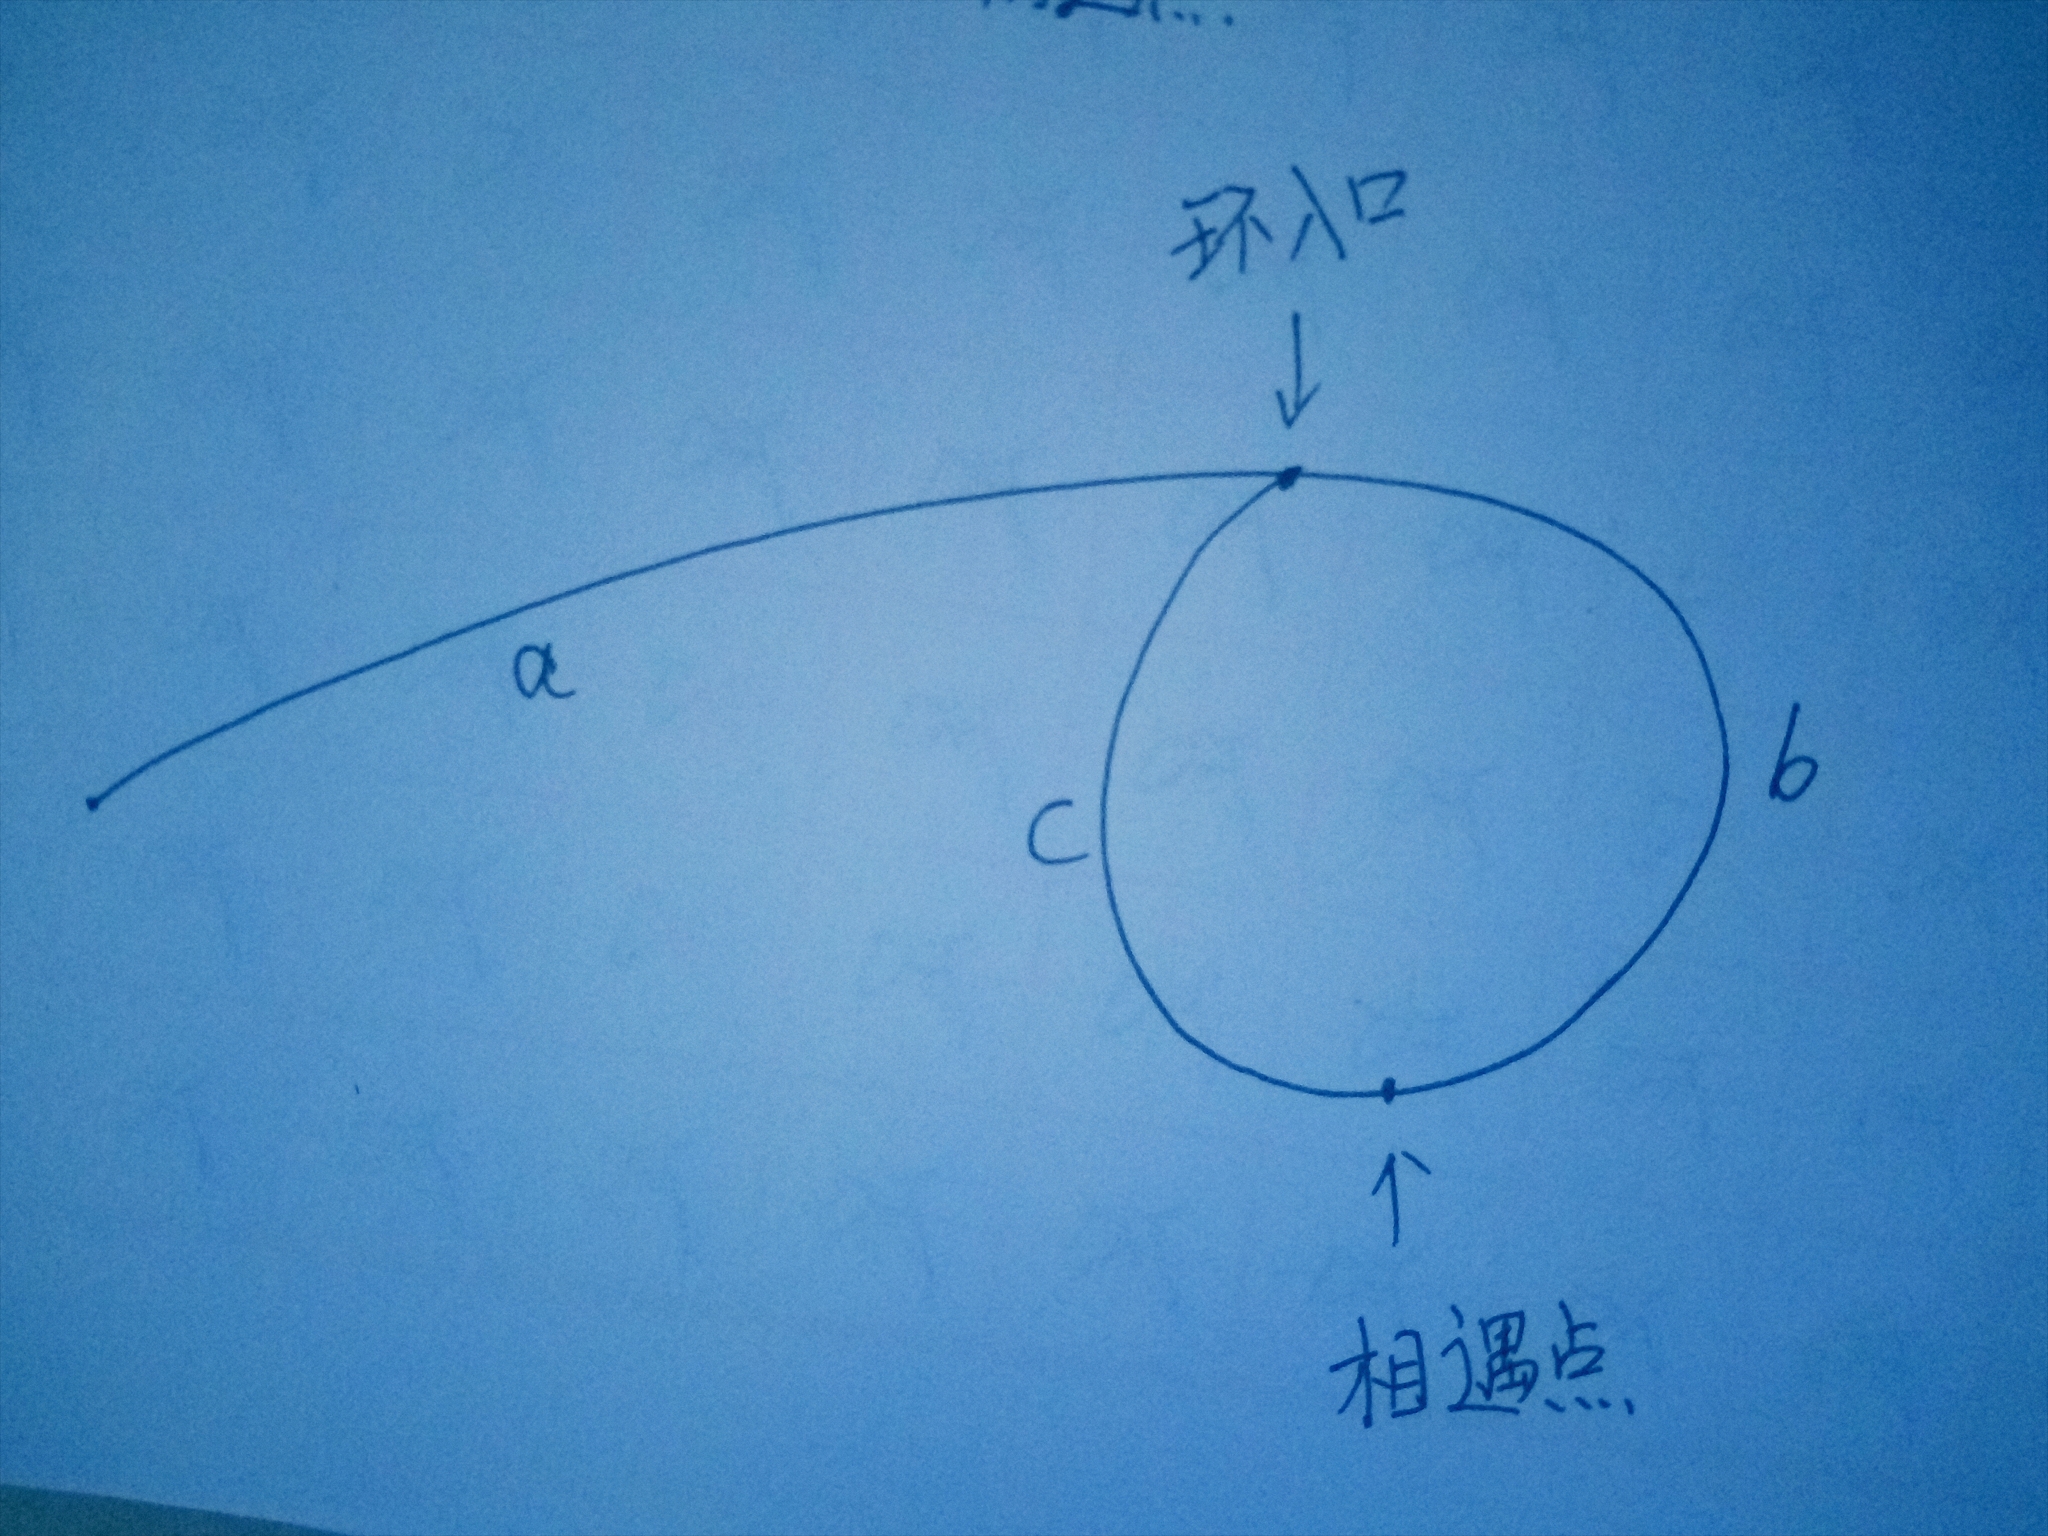 环入口
a
b
c
相遇点